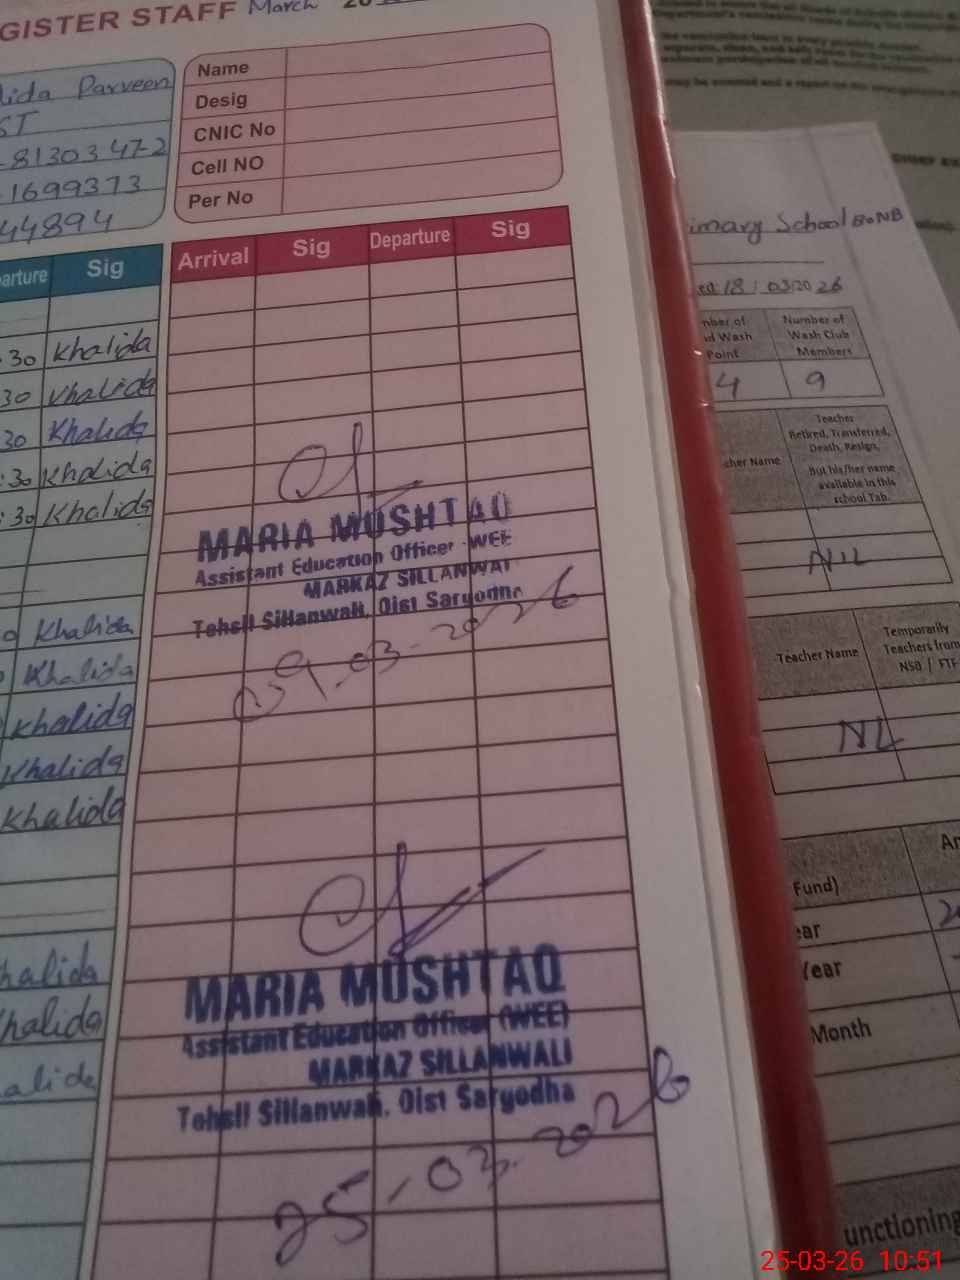 GISTER STAFF March 20
lida Parveen
ST
-8130347-2
-1699373
44894
Name
Desig
CNIC No
Cell NO
Per No
arture Sig
Arrival Sig Departure Sig
:30 Khalida
30 Khalida
30 Khalida
:30 Khalida
:30 Khalida
Khalida
Khalida
Khalida
Khalida
Khalida
halida
Khalida
alida
MARIA MUSHTAQ
Assistant Education Officer WEE
MARKAZ SILLANWAI
Tehsil Sillanwali, Dist Sargodha
09-03-2026
MARIA MUSHTAQ
Assistant Education Officer (WEE)
MARKAZ SILLANWALI
Tehsil Sillanwali. Dist Sargodha
25-03-2026
imary School
ed: 18/03/2026
nber of
d Wash
Point
Number of
Wash Club
Members
4 9
cher Name
Teacher
Retired, Transferred,
Death, Resign,
But his/her name
available in this
school Tab.
NIL
Teacher Name
Temporarily
Teachers from
NSB / FTF
NIL
Fund)
ear
Year
Month
unctioning
25-03-26 10:51